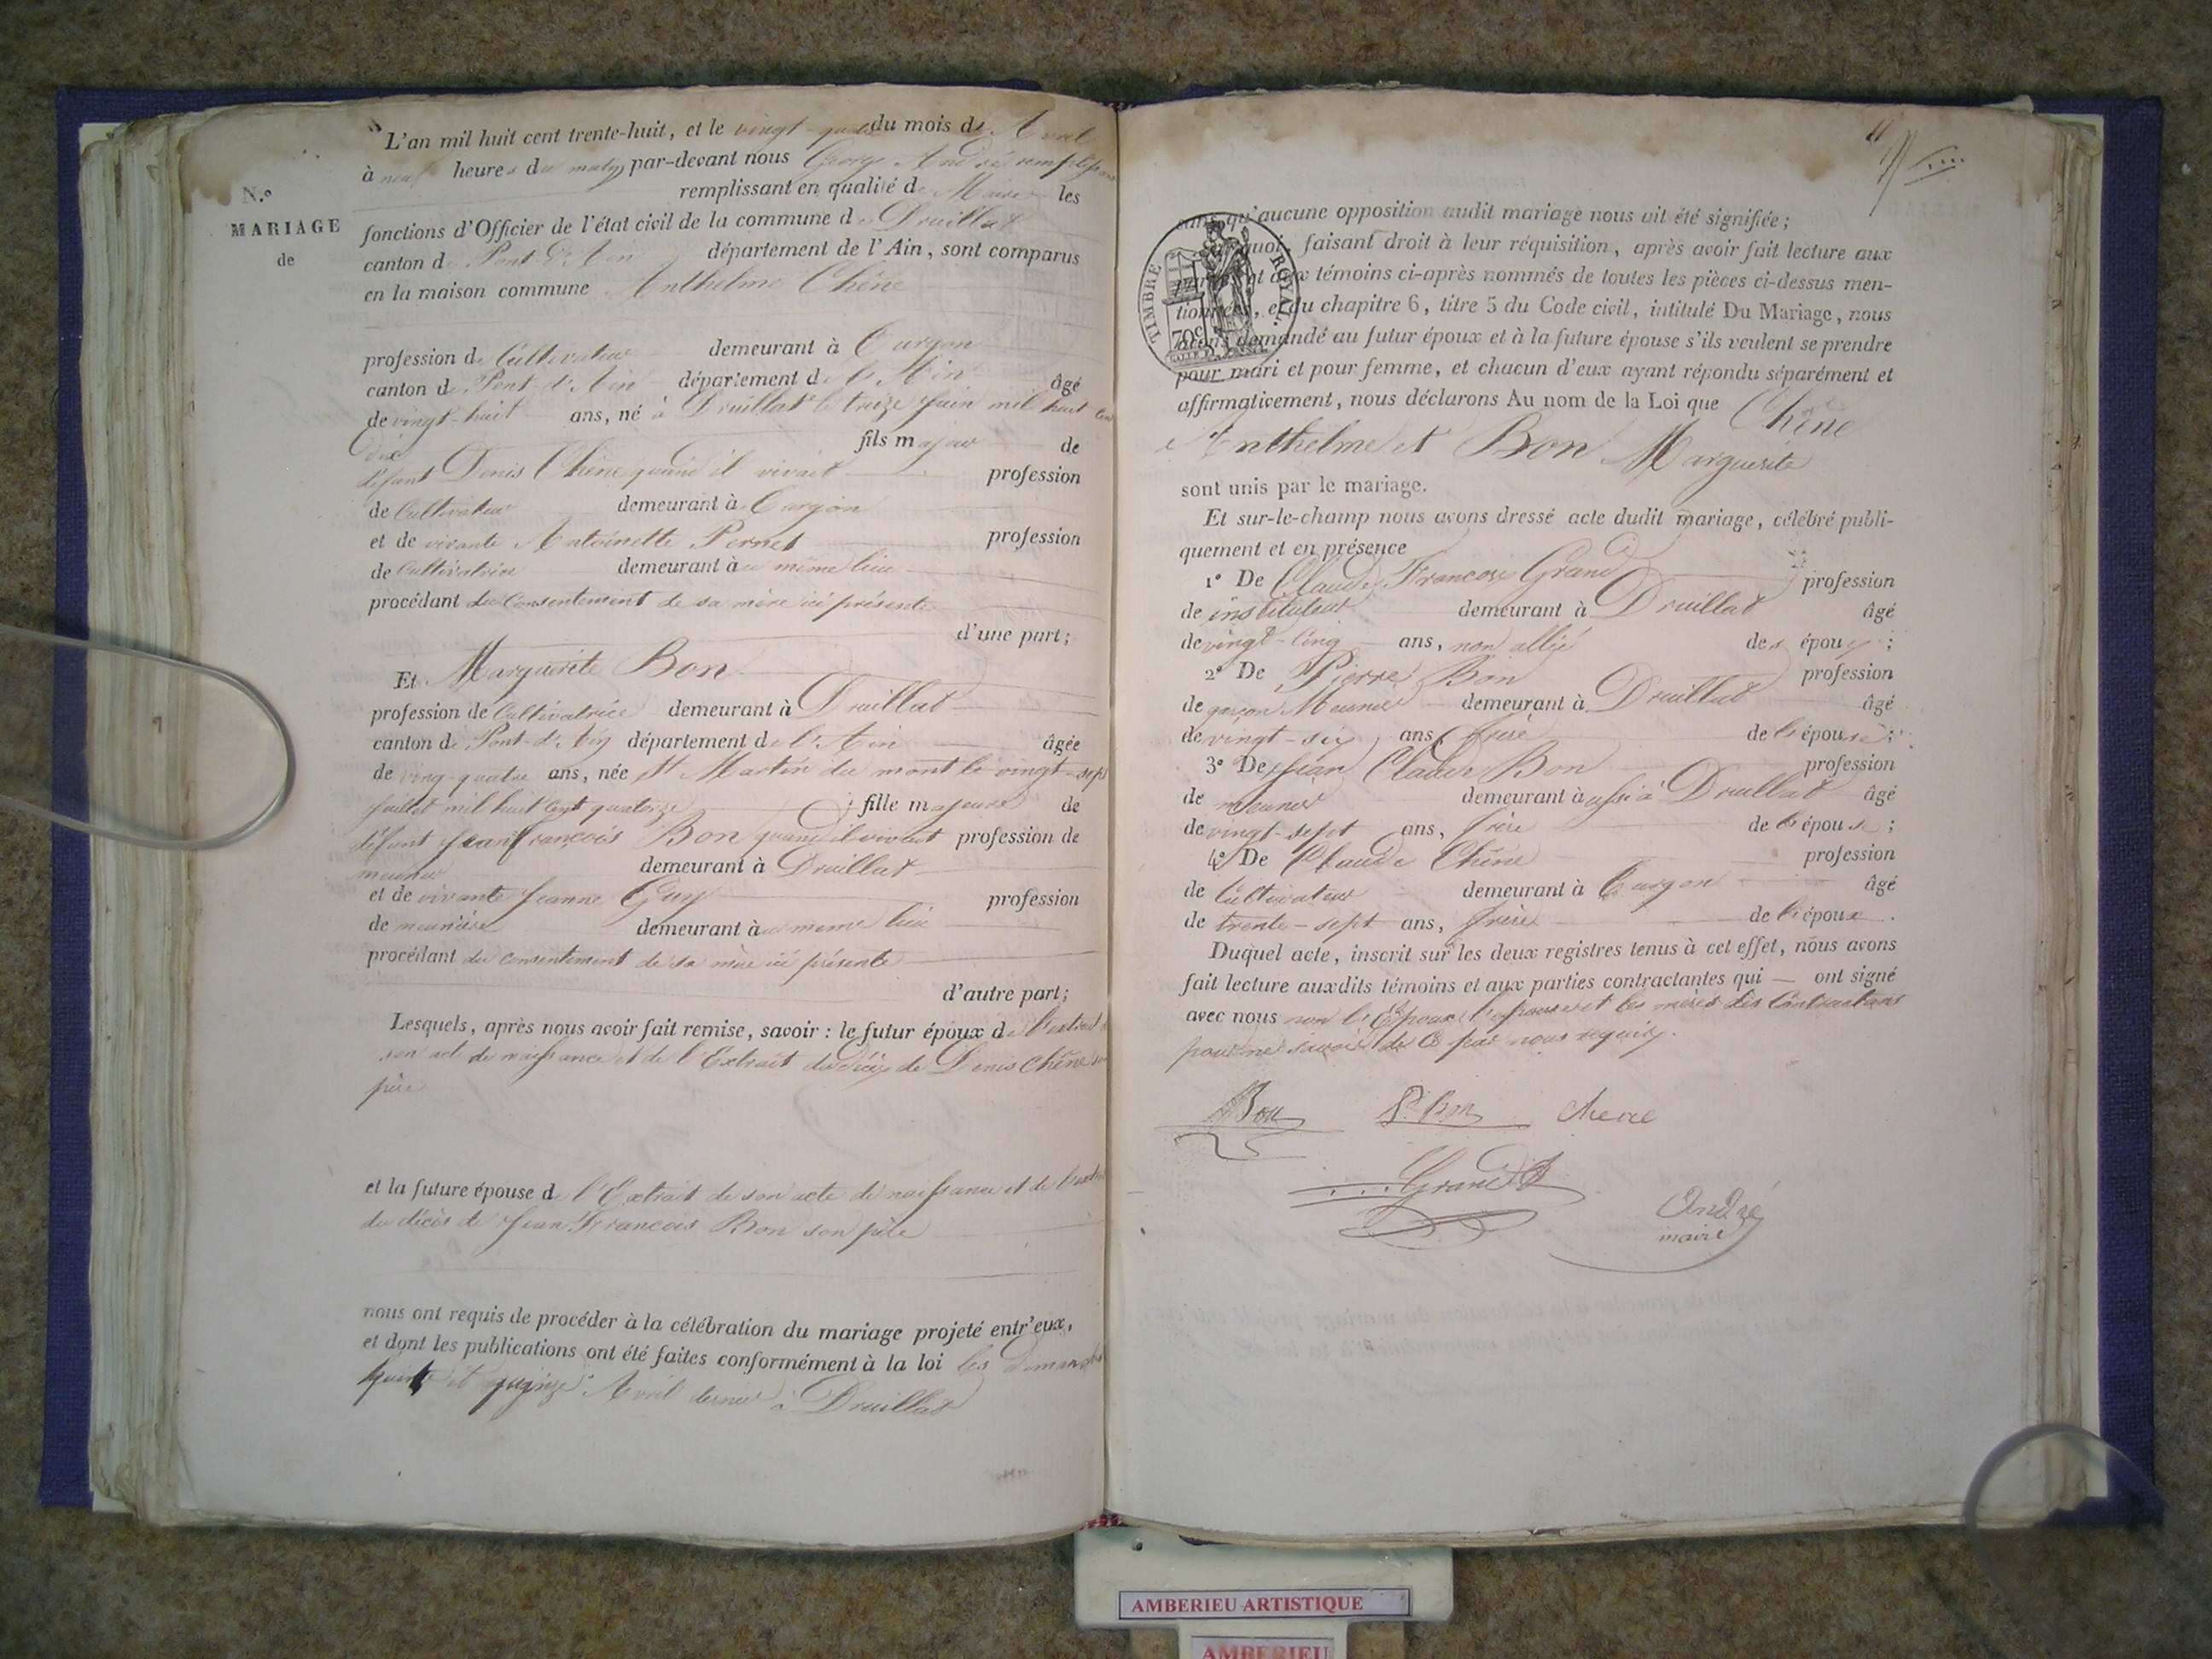 L'an mil huit cent trente-huit, et le vingt-quatre du mois de Avril
à neuf heures du matin par-devant nous George André
remplissant en qualité de Maire les
N.º
MARIAGE
de
fonctions d'Officier de l'état civil de la commune de Druillat
canton de Pont d'Ain département de l'Ain, sont comparus
en la maison commune Anthelme Chêne
profession de Cultivateur demeurant à Turgon
canton de Pont-d'Ain département de l'Ain âgé
de vingt-huit ans, né à Druillat le treize Juin mil huit cent
dix fils majeur de
défunt Denis Chêne quand il vivait profession
de Cultivateur demeurant à Turgon
et de vivante Antoinette Pernet profession
de Cultivatrice demeurant au même lieu
procédant du Consentement de sa mère ici présente
d'une part;
Et Marguerite Bon
profession de Cultivatrice demeurant à Druillat
canton de Pont-d'Ain département de l'Ain âgée
de ving-quatre ans, née St Martin du mont le vingt-sept
Juillet mil huit Cent quatorze fille majeure de
défunt Jean françois Bon quand il vivait profession de
meunier demeurant à Druillat
et de vivante Jeanne Guy profession
de meunière demeurant au meme lieu
procédant du consentement de sa mère ici présente
d'autre part;
Lesquels, après nous avoir fait remise, savoir : le futur époux de l'extrait
son acte de naissance et de l'Extrait du décès de Denis Chêne son
père
et la future épouse de l'Extrait de son acte de naissance et de l'extrait
du décès de Jean François Bon son père
nous ont requis de procéder à la célébration du mariage projeté entr'eux,
et dont les publications ont été faites conformément à la loi les Dimanches
et quinze Avril dernier à Druillat
sans qu'aucune opposition audit mariage nous ait été signifiée;
quoi, faisant droit à leur réquisition, après avoir fait lecture aux
et aux témoins ci-après nommés de toutes les pièces ci-dessus men-
tionnées, et du chapitre 6, titre 5 du Code civil, intitulé Du Mariage, nous
avons demandé au futur époux et à la future épouse s'ils veulent se prendre
pour mari et pour femme, et chacun d'eux ayant répondu séparément et
affirmativement, nous déclarons Au nom de la Loi que Chêne
Anthelme et Bon Marguerite
sont unis par le mariage.
TIMBRE ROYAL.
70c
Et sur-le-champ nous avons dressé acte dudit mariage, célébré publi-
quement et en présence
1º De Claude François Grand profession
de instituteur demeurant à Druillat âgé
de vingt-cinq ans, non allié des époux ;
2º De Pierre Bon profession
de garçon Meunier demeurant à Druillat âgé
de vingt-six ans, frère de l'épouse ;
3º De Jean Claude Bon profession
de meunier demeurant aussi à Druillat âgé
de vingt-sept ans, frère de l'épouse ;
4º De Claude Chêne profession
de Cultivateur demeurant à Turgon âgé
de trente-sept ans, frère de l'époux .
Duquel acte, inscrit sur les deux registres tenus à cet effet, nous avons
fait lecture auxdits témoins et aux parties contractantes qui — ont signé
avec nous non l'Epoux l'epouse et les mères des Contractans
pour ne savoir de ce par nous requis.
Bon P. Bon Chene
Grand
André
maire
AMBERIEU ARTISTIQUE
AMBERIEU